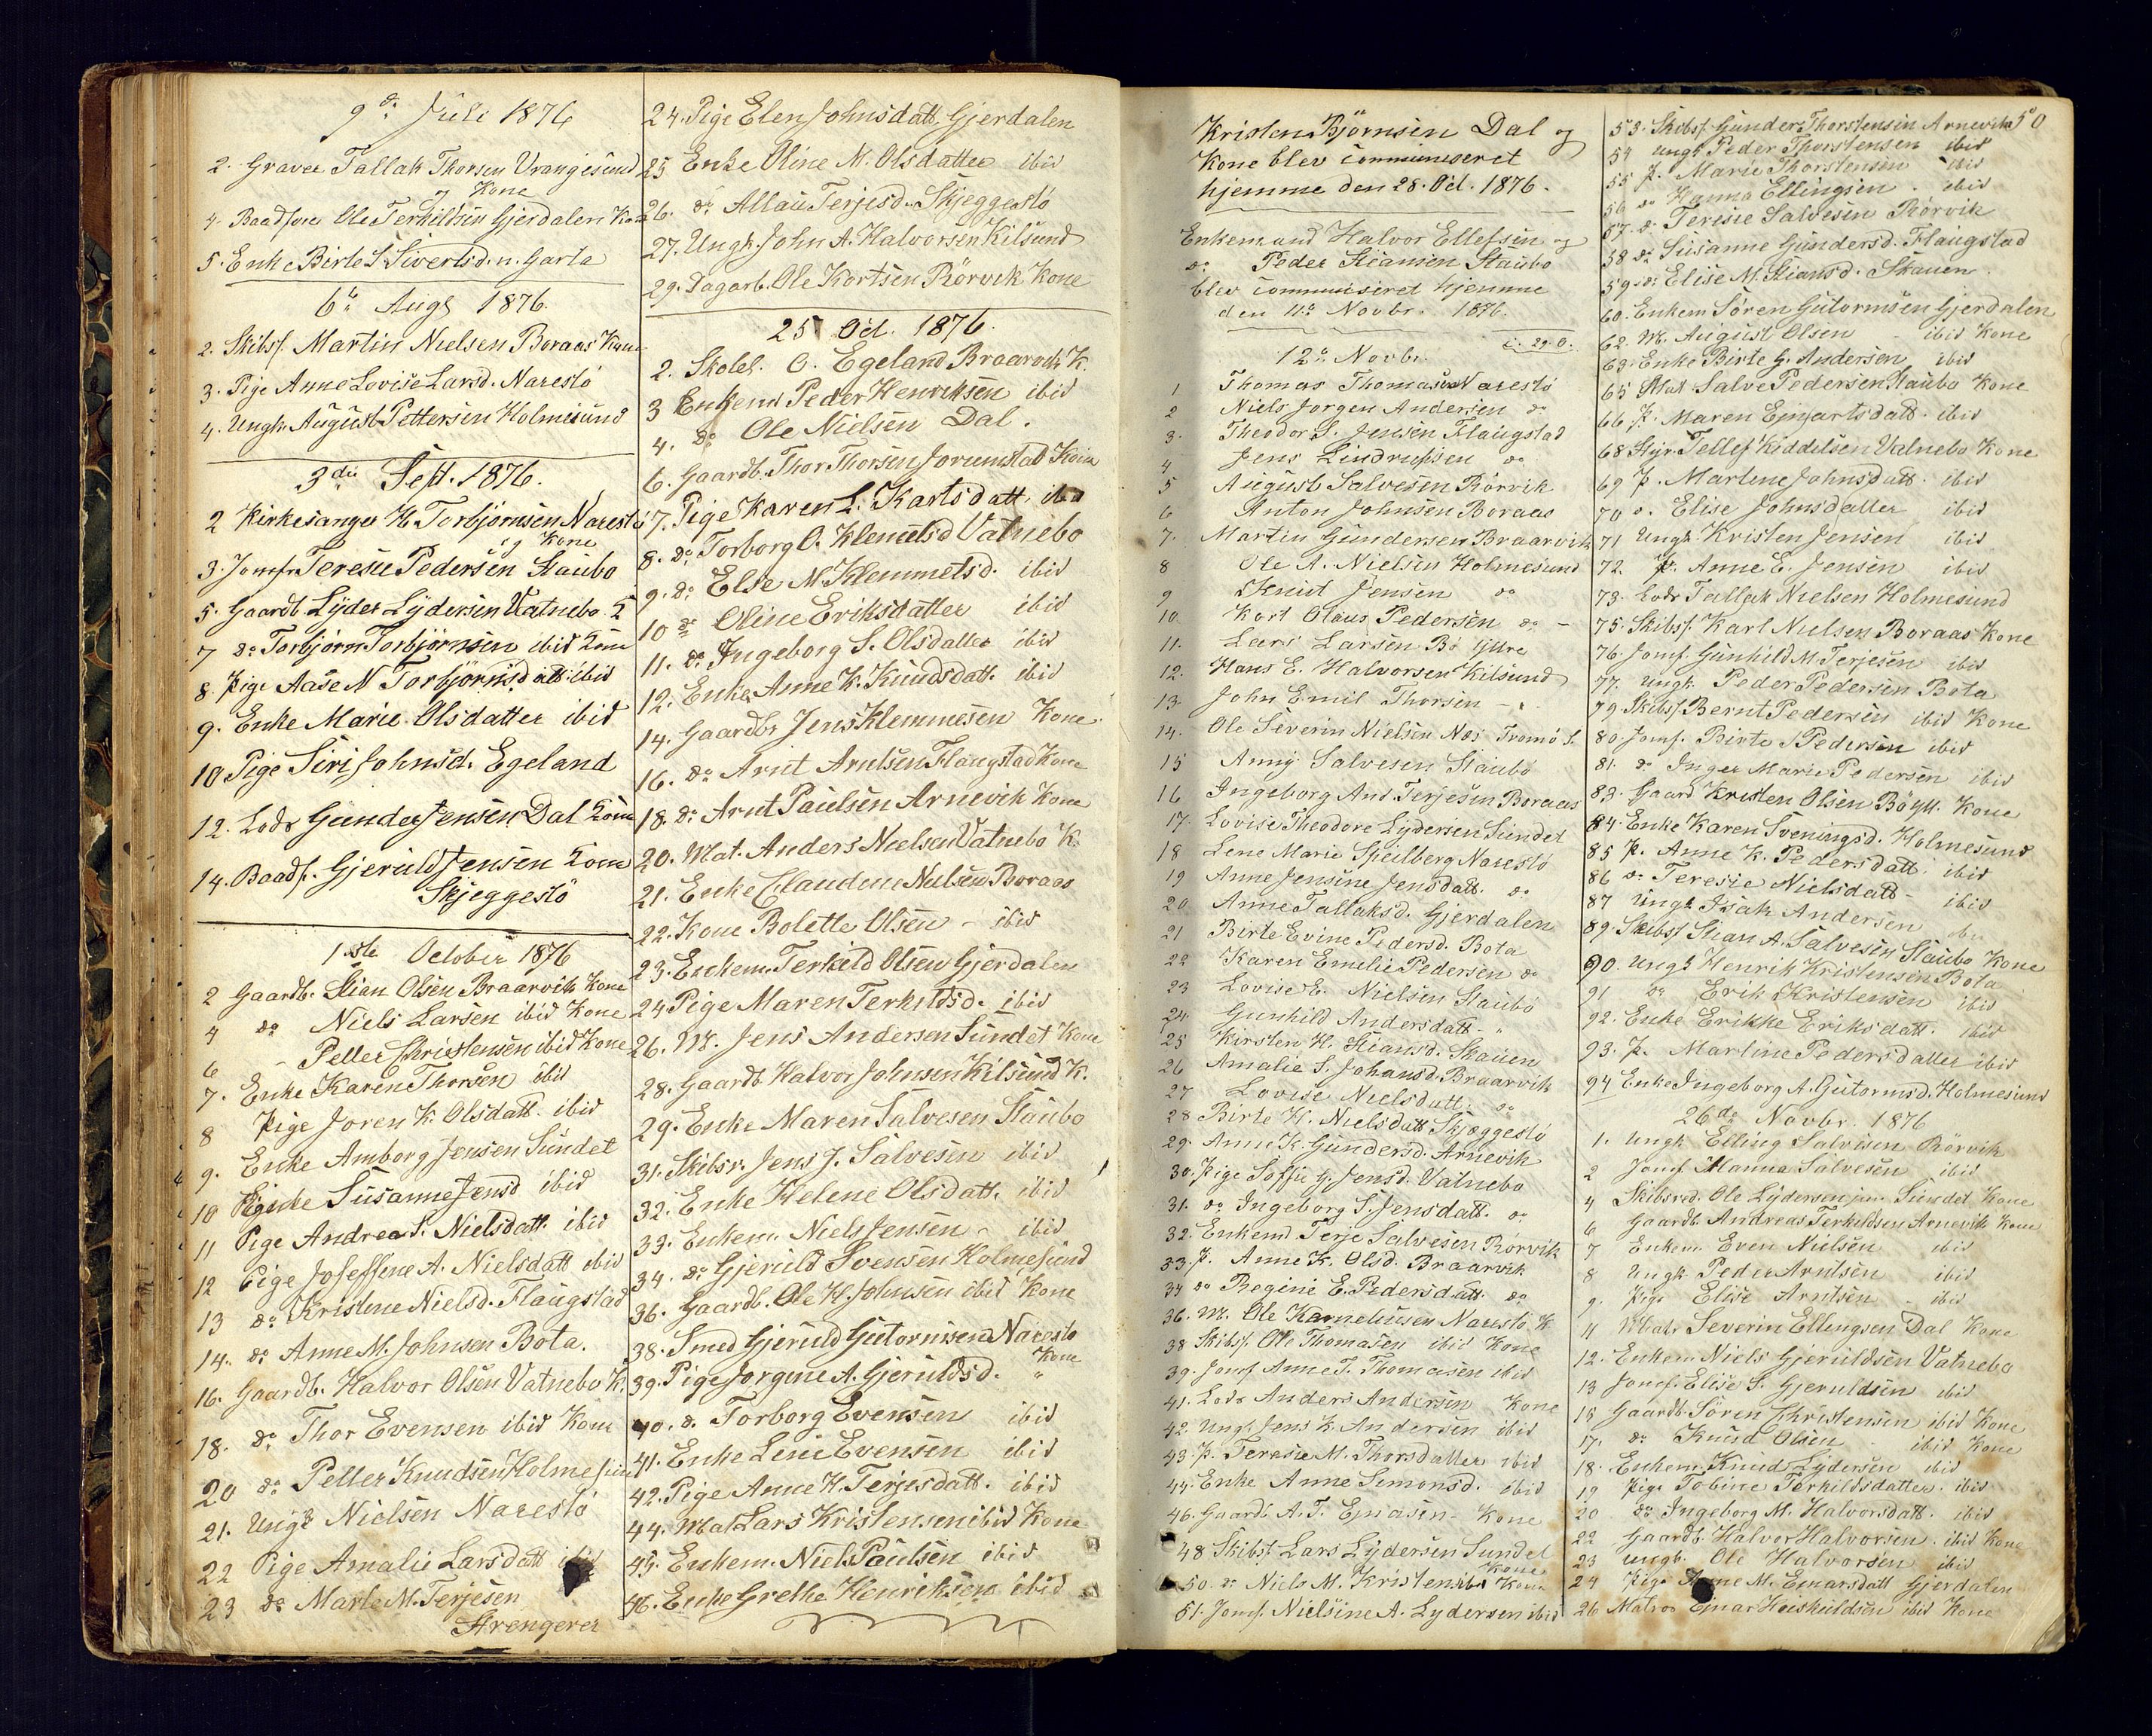 9de Juli 1876
2. Graver Tallak Thorsen Vrangesund
og Kone
4. Baadfører Ole Terkildsen Gjerdalen Kone
5. Enke Birte S. Sivertsd. n. Garta
6te Augs 1876.
2. Skibsf. Martin Nielsen Boraas Kone
3. Pige Anne Lovise Larsd. Narestö
4. Ungk. August Pettersen Holmesund
3die Sept. 1876.
2 Kirkesanger H. Torbjørnsen Narestö
og Kone
3. Jomfr Teresie Pedersen Staubo
5. Gaardb. Lyder Lydersen Vatnebo K
7 do Torbjørn Torbjørnsen ibid Kone
8. Pige Aase N Torbjørnsdatt ibid
9. Enke Marie Olsdatter ibid
10 Pige Siri Johnsd. Egeland
12. Lods Gunder Jensen Dal Kone
14. Baadf. Gjeruld Jensen Kone
Skjeggestö
1ste October 1876
2 Gaardb. Stian Olsen Braarvik Kone
4 do Niels Larsen ibid Kone
6 - Petter Christensen ibid Kone
7. Enke Karen Thorsen ibid
8 Pige Joren K. Olsdatt. ibid
9. Enke Amborg Jensen Sundet
10 Susanne Jensd ibid
11 Pige Andrea S. Nielsdatt. ibid
12 Pige Joseffine A. Nielsdatt ibid
13 do Kristine Nielsd. Flaugstad
14. do Anne M. Johnsen Bota.
16. Gaardb. Halvor Olsen Vatnebo K.
18. do Thor Evensen ibid Kone
20 do Petter Knudsen Holmesund
21. Ungk Nielsen Narestö
22 Pige Amalie Larsdatt ibid
23 do Marte M. Terjesen
Strengerei
24. Pige Elen Johnsdatt. Gjerdalen
25 Enke Oline M. Olsdatter ibid
26. do Allau Terjesd. Skjeggestö
27. Ungk. John A. Halvorsen Kilsund
29. Dagarb. Ole Kortsen Rörvik Kone
25 Oct. 1876.
2. Skolel. O. Egeland Braarvik K.
3 Enkemd Peder Henriksen ibid
4. do Ole Nielsen Dal.
6. Gaardb. Thor Thorsen Jorumstad Kone
7. Pige Karen L. Kartsdatt. ibid
8. do Torborg O. Klemetsd Vatnebo
9. do Else M Klemmetsd. ibid
10 do Oline Eriksdatter ibid
11. do Ingeborg S. Olsdatter ibid
12. Enke Anne K. Knudsdatt. ibid
14. Gaardbr Jens Klemmesen Kone
16. do Arnt Arntsen Flaugstad Kone
18. do Arnt Paulsen Arnevik Kone
20. Mat. Anders Nielsen Vatnebo K.
21. Enke Claudine Nielsen Boraas
22. Kone Bolette Olsen - ibid
23. Enkem. Terkild Olsen Gjerdalen
24 Pige Maren Terkildsd. ibid
26. M. Jens Andersen Sundet Kone
28. Gaardb Halvor Johnsen Kilsund K.
29. Enke Maren Salvesen Staubo
31. Skibsr. Jens J. Salvesen ibid
32. Enke Helene Olsdatt. ibid
33. Enkem. Niels Jensen - ibid
34. do Gjeruld Svensen Holmesund
36. Gaardb. Ole H. Johnsen ibid Kone
38. Smed Gjeruld Gutormsen Narestö
Kone
39. Pige Jorgine A. Gjeruldsd. "
40. d. Torborg Evensen ibid
41. Enke Lene Evensen ibid
42. Pige Anne K. Terjesdatt. ibid
44. Mat Lars Kristensen ibid Kone
45. Enkem. Niels Paulsen ibid
46. Enke Grethe Henriksen ibid
50
Kristen Bjørnsen Dal og
Kone blev communiseret
hjemme den 28. Oct. 1876.
Enkemand Halvor Ellefsen og
do Peder Stiansen Staubo
blev communiseret hjemme
den 11te Novbr. 1876.
12te Novbr.
1 Thomas Thomasen Narestö
2 Niels Jørgen Andersen do
3. Theodor S. Jensen Flaugstad
4 Jens Lindrupsen do
5 August Salvesen Rörvik
6 Anton Johnsen Boraas
7. Martin Gundersen Braarvik
8 Ole A. Nielsen Holmesund
9 Knud Jensen do
10 Kort Olaus Pedersen do -
11. Lars Larsen Bö Yttre
12. Hans E. Halvorsen Kilsund
13 John Emil Thorsen - "
14. Ole Severin Nielsen Næs Tromö S.
15 Anny Salvesen Staubo
16 Ingeborg And. Terjesen Boraas
17. Lovise Theodore Lydersen Sundet
18 Lene Marie Speilberg Narestö
19 Anne Jensine Jensdatt. do
20 Anne Tallaksd. Gjerdalen
21 Birte Evine Pedersd. Bota
22 Karen Emilie Pedersen do
23 Lovise E. Nielsen Staubo
24 Gunhild Andersdatt. "
25 Kirsten H. Stiansd. Skauen
26 Amalie S. Johansd. Braarvik
27 Lovise Nielsdatt. do
28 Birte H. Nielsdatt Skjeggestö
29. Anne K. Gundersd. Arnevik
30. Pige Soffie G. Jensd. Vatnebo
31. do Ingeborg S. Jensdatt. do
32. Enkemd Terje Salvesen Rörvik
33. P. Anne K. Olsd. Braarvik
34 do Regine E. Pedersdatt. do
36. M. Ole Kornelussen Narestö K
38 Skibsf. Ole Thomasen ibid Kone
39. Jomf Anne T. Thomasen ibid
41. Lods Anders Andersen Kone
42. Ungk. Jens K. Andersen ibid
43. P. Teresie M. Thorsdatter ibid
44. Enke Anne Simonsd. ibid
46. Gaardb A. T. - Kone
48 Skibsf. Lars Lydersen Sundet
Kone
50. do Niels M. Kristensen Kone
51. Jomf. Nielsine A. Lydersen ibid
53. Skibsf. Gunder Thorstensen Arnevik
54 Ungk Peder Thorstensen ibid
55 P. Marie Thorstensen ibid
56 do Hanna Ellingsen. ibid
57. d. Teresie Salvesen Rörvik
58 do Susanne Gundersd. Flaugstad
59. do Elise M. Stiansd. Skauen.
60. Enkem Søren Gutormsen Gjerdalen
62. M. August Olsen - ibid Kone
63. Enke Birte G. Andersen ibid
65 Mat Salve Pedersen Staubo Kone
66 P. Maren Ejnartsdatt. ibid
68 Styr. Tellef Kiddelsen Vatnebo Kone
69 P. Martine Johnsdatt. ibid
70 d. Elise Johnsdatter ibid
71 Ungk. Kristen Jensen ibid
72. P. Anne E. Jensen ibid
73. Lods Tallak Nielsen Holmesund
75. Skibsf. Karl Nielsen Boraas Kone
76 Jomf. Gunhild M. Terjesen ibid
77. Ungk. Peder Pedersen Bota
79. Skibsf Bernt Pedersen ibid Kone
80 Jomf. Birte Pedersen ibid
81. do Inger Marie Pedersen ibid
83. Gaard Kristen Olsen Bö Ytt. Kone
84. Enke Karen Sveningsd. Holmesund
85 P. Anne K. Pedersdatt. ibid
86 do Teresie Nielsdatt - ibid
87 Ungk Isak Andersen
89. Skibsf Stian A. Salvesen Staubo Kone
90. Ungk Henrik Kristensen Bota
91 do Erik Kristensen ibid
92. Enke Erikke Eriksdatt. ibid
93. P. Martine Pedersdatter ibid
94 Enke Ingeborg A. Gutormsd. Holmesund
26de Novbr. 1876
1. Ungk Elling Salvesen Rörvik
2 Jomf. Hanna Salvesen ibid
4 Skibsred. Ole Lydersen jun. Sundet Kone
6 Gaardb Andreas Terkildsen Arnevik Kone
7 Enkem. Even Nielsen ibid
8 Ungk Peder Arntsen ibid
9. Pige Elise Arntsen ibid
11 Matr Severin Ellingsen Dal Kone
12. Enkem Niels Gjeruldsen Vatnebo
13 Jomf. Elise S. Gjeruldsen ibid
15 Gaardb. Søren Christensen ibid Kone
17. do Knud Olsen ibid Kone
18. Enkem. Knud Lydersen ibid
19 Pige Tobine Terkildsdatter. ibid
20 do Ingeborg M. Halvorsdatt. ibid
22 Gaardb. Halvor Halvorsen. ibid Kone
23 Ungk. Ole Halvorsen ibid
24 Pige Anne M. Einarsdatt Gjerdalen
26 Matros Ejnar Heiskuldsen ibid Kone